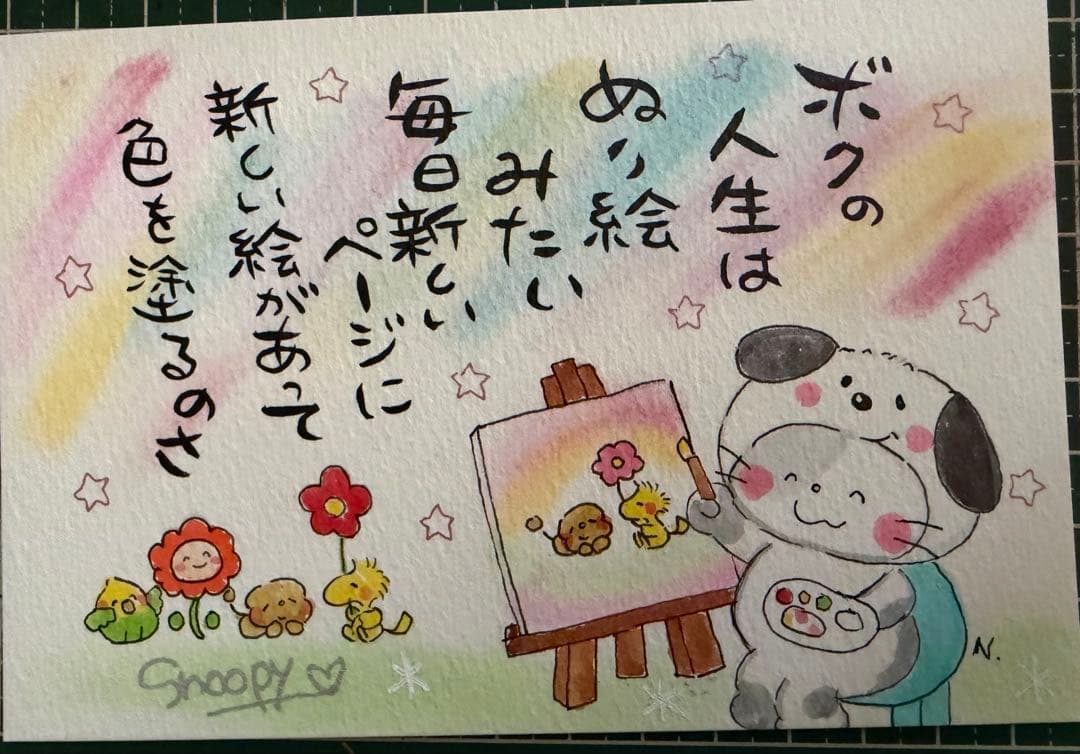 ボクの
人生は
ぬり絵
みたい
毎日新しい
ページに
新しい絵があって
色を塗るのさ
Snoopy
N.